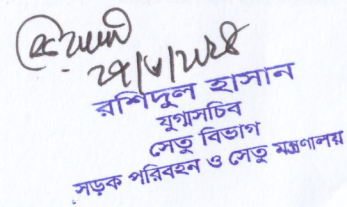 রশিদুল হাসান
যুগ্মসচিব
সেতু বিভাগ
সড়ক পরিবহন ও সেতু মন্ত্রণালয়